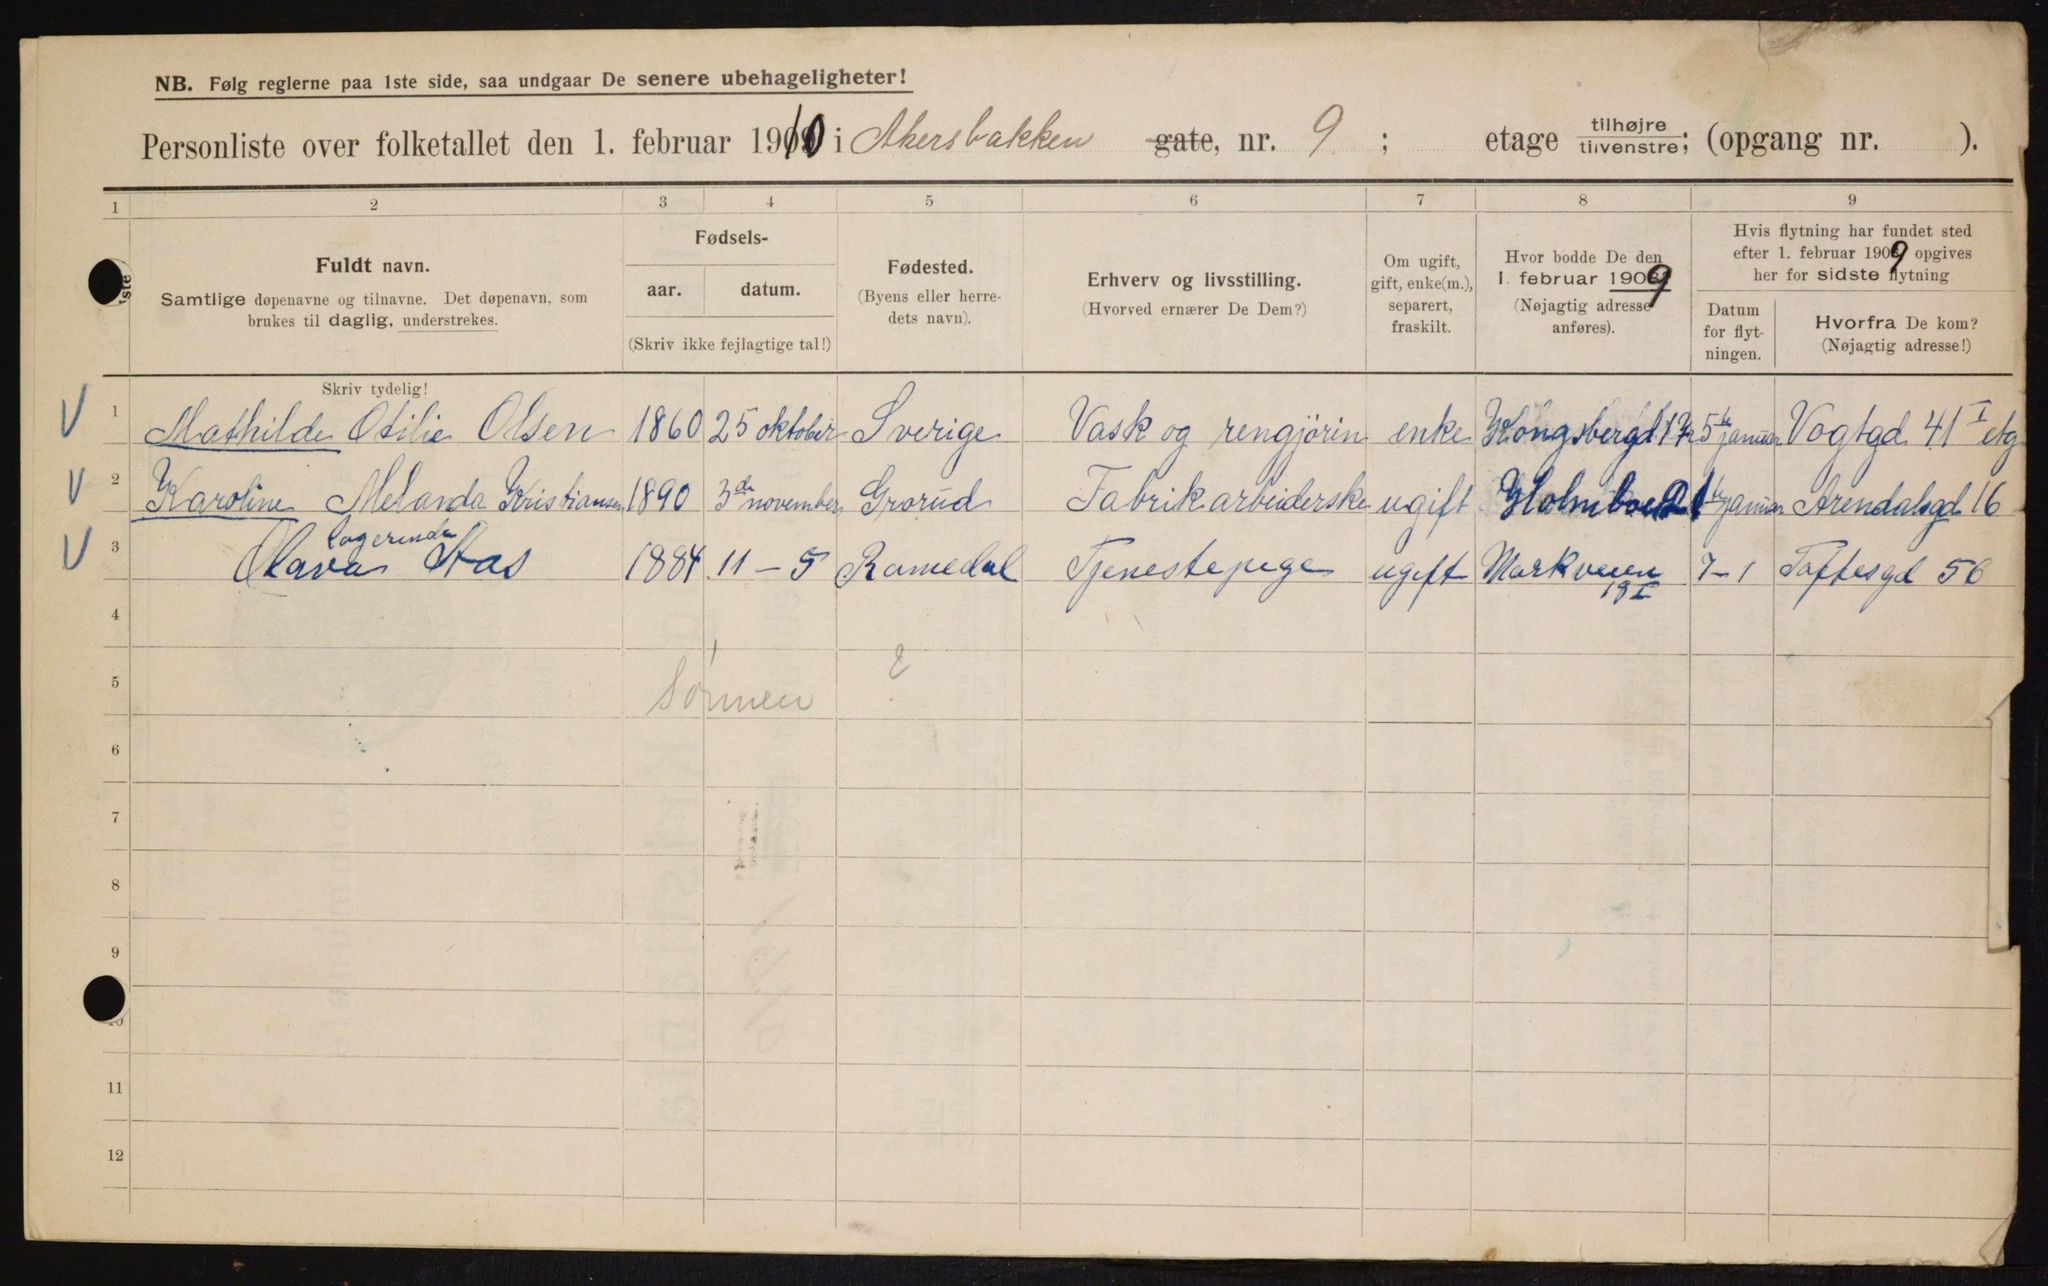 NB. Følg reglerne paa 1ste side, saa undgaar De senere ubehageligheter!
Personliste over folketallet den 1. februar 1910 i Akersbakken gate, nr. 9 ; etage tilhøjre tilvenstre; (opgang nr. ).
1 2 3 4 5 6 7 8 9
Fuldt navn.
Samtlige døpenavne og tilnavne. Det døpenavn, som
brukes til daglig, understrekes.
Fødsels-
aar. datum.
(Skriv ikke fejlagtige tal!)
Fødested.
(Byens eller herre-
dets navn).
Erhverv og livsstilling.
(Hvorved ernærer De Dem?)
Om ugift,
gift, enke(m.),
separert,
fraskilt.
Hvor bodde De den
1. februar 1909
(Nøjagtig adresse
anføres).
Hvis flytning har fundet sted
efter 1. februar 1909 opgives
her for sidste flytning
Datum
for flyt-
ningen.
Hvorfra De kom?
(Nøjagtig adresse!)
Skriv tydelig!
1 Mathilde Otilie Olsen 1860 25 oktober Sverige Vask og rengjörin enke Kongsbergd 17 5te januar Vogtgd 41 I etg
2 Karoline Melanda Kristiansen 1890 3de november Grorud Fabrikarbeiderske ugift januar Arendalsgd 16
logerende
3 Olava Aas 1884 11 - 5 Romedal Tjenestepige ugift Markveien 7-1 Toftesgd 56
18 I
4
5 Sönnen
6
7
8
9
10
11
12